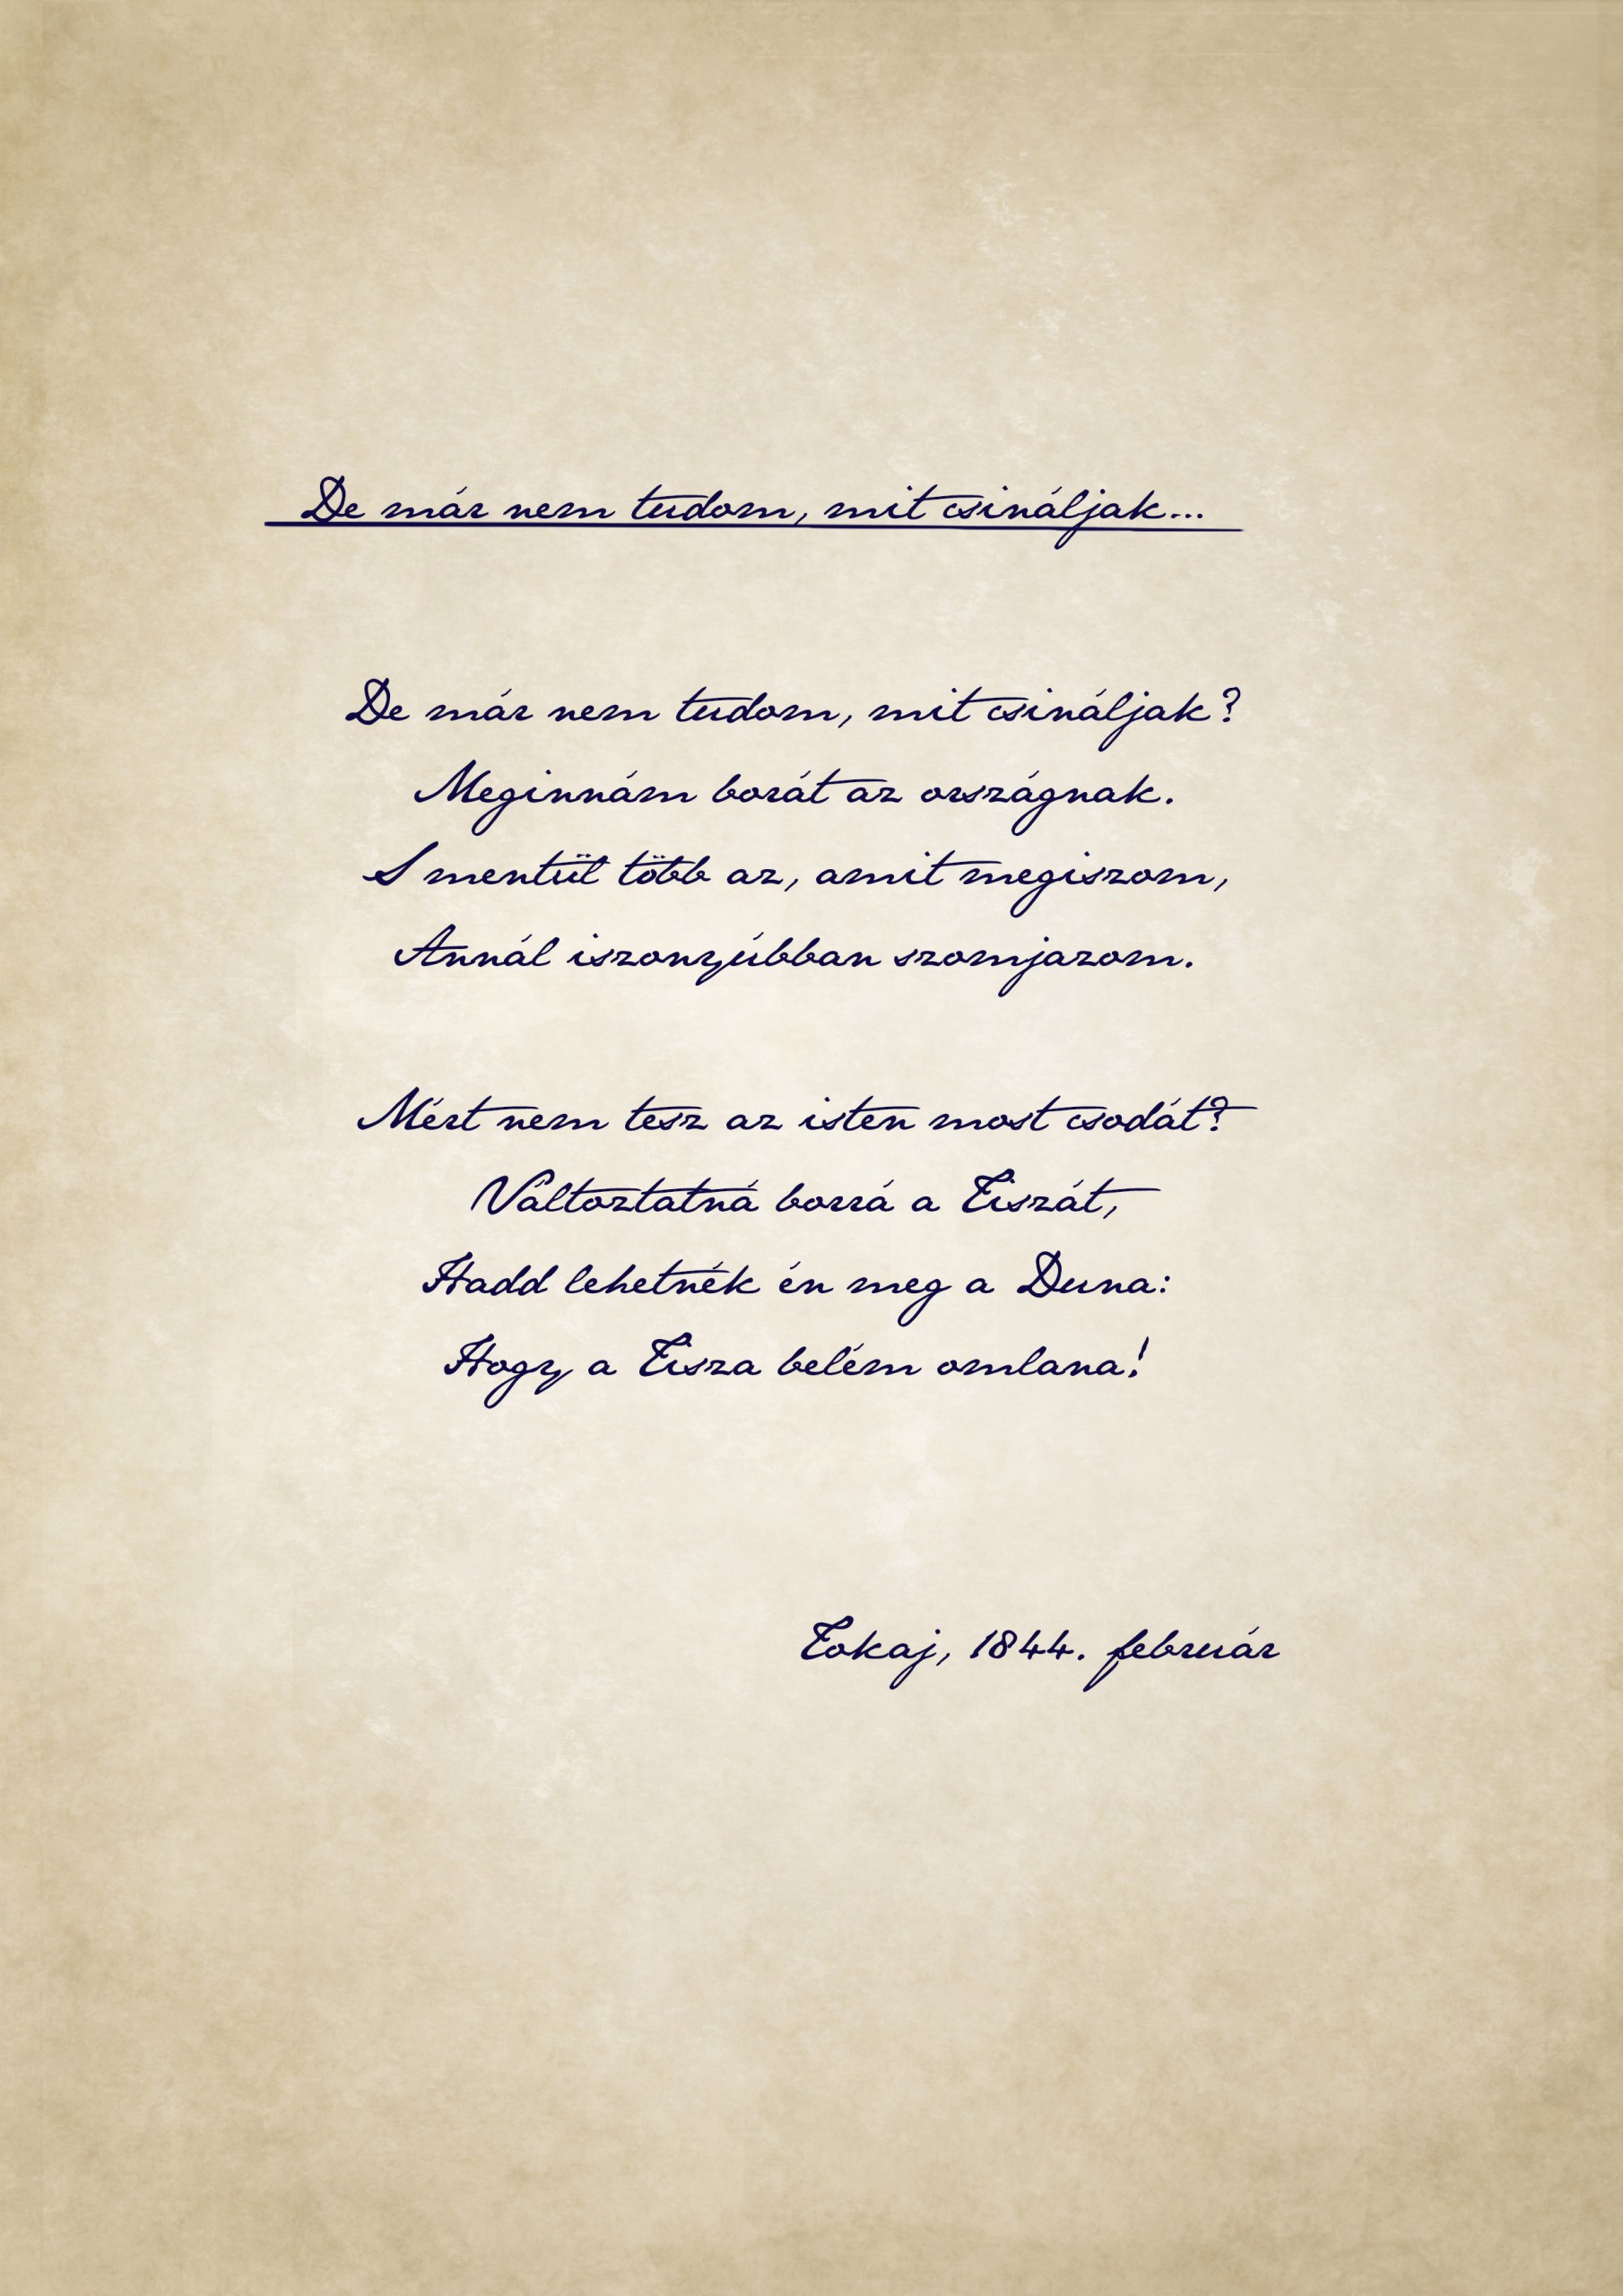 De már nem tudom, mit csináljak...
De már nem tudom, mit csináljak?
Meginnám borát az országnak.
S mentül több az, amit megiszom,
Annál iszonyúbban szomjazom.
Mért nem tesz az isten most csodát?
Változtatná borrá a Tiszát,
Hadd lehetnék én meg a Duna:
Hogy a Tisza belém omlana!
Tokaj, 1844. február